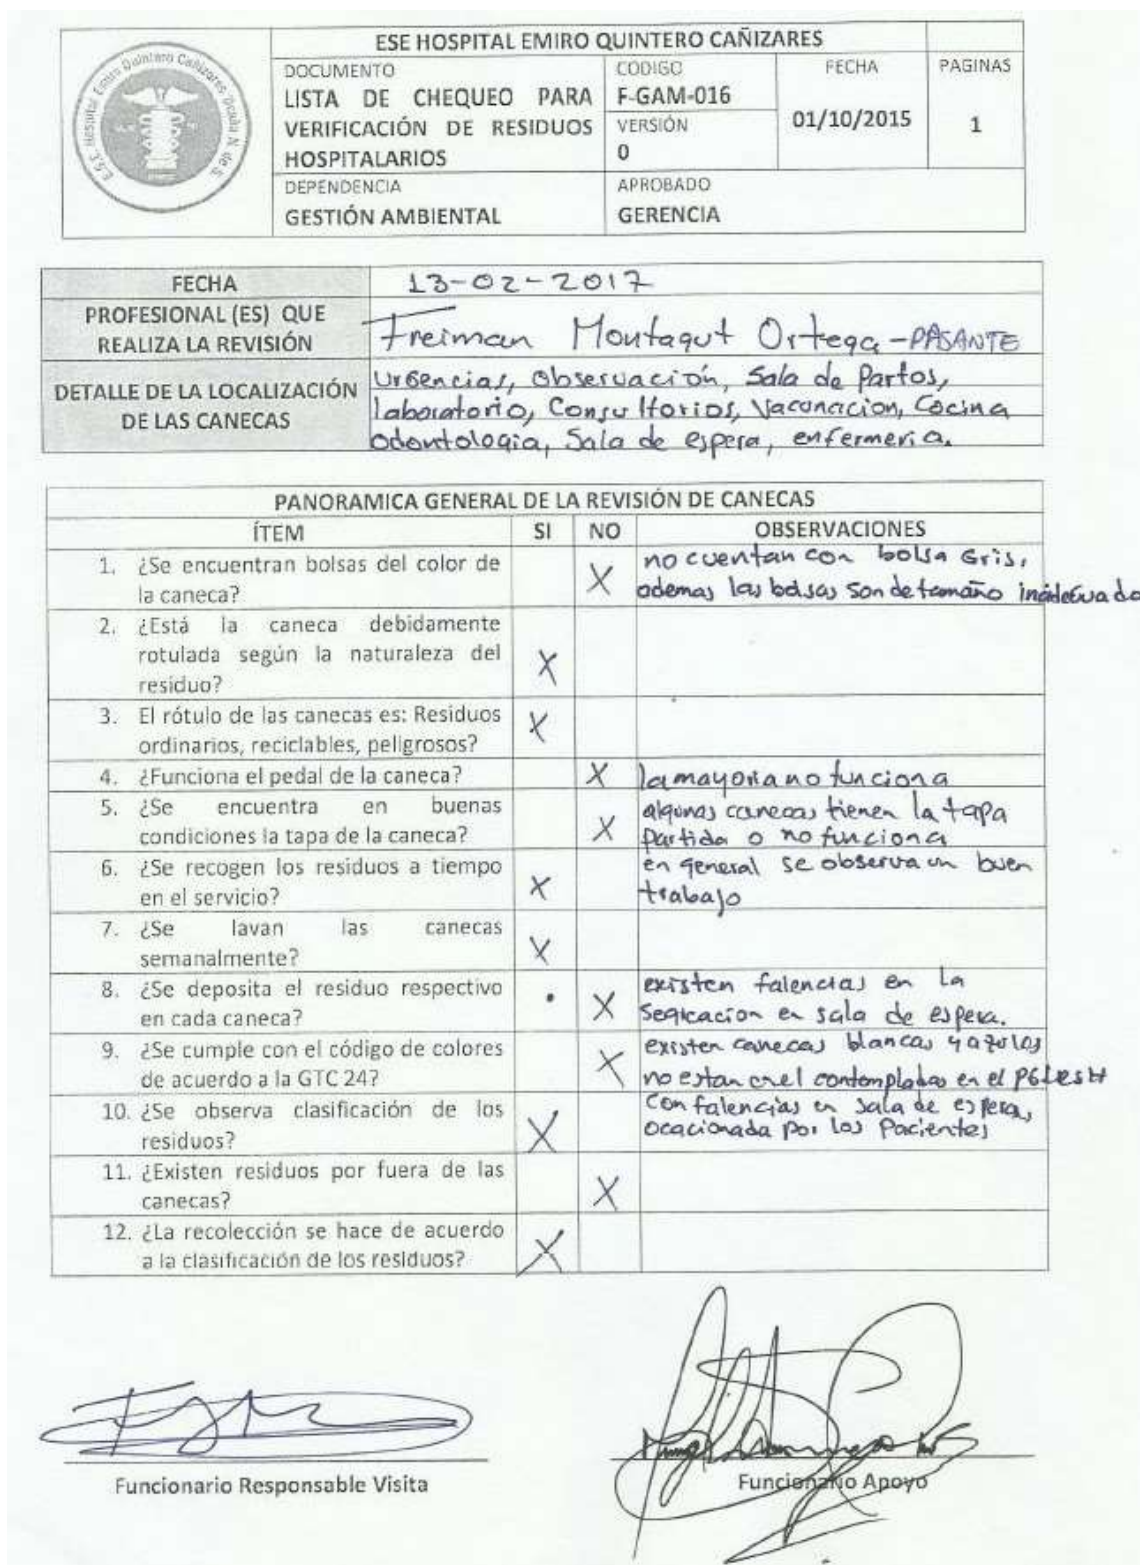 ESE HOSPITAL EMIRO QUINTERO CAÑIZARES
DOCUMENTO
LISTA DE CHEQUEO PARA
VERIFICACIÓN DE RESIDUOS
HOSPITALARIOS
CODIGO
F-GAM-016
VERSIÓN
0
FECHA
01/10/2015
PAGINAS
1
DEPENDENCIA
GESTIÓN AMBIENTAL
APROBADO
GERENCIA
FECHA
13-02-2017
PROFESIONAL (ES) QUE
REALIZA LA REVISIÓN
Freiman Montagut Ortega - PASANTE
DETALLE DE LA LOCALIZACIÓN
DE LAS CANECAS
Urgencias, Observación, Sala de Partos,
laboratorio, Consultorios, Vacunacion, Cocina
odontologia, Sala de espera, enfermeria.
PANORAMICA GENERAL DE LA REVISIÓN DE CANECAS
ÍTEM SI NO OBSERVACIONES
1. ¿Se encuentran bolsas del color de
la caneca?
X
no cuentan con bolsa Gris,
ademas las bolsas son de tamaño inadecuado
2. ¿Está la caneca debidamente
rotulada según la naturaleza del
residuo?
X
3. El rótulo de las canecas es: Residuos
ordinarios, reciclables, peligrosos?
X
4. ¿Funciona el pedal de la caneca?
X
la mayoria no funciona
5. ¿Se encuentra en buenas
condiciones la tapa de la caneca?
X
algunas canecas tienen la tapa
partida o no funciona
6. ¿Se recogen los residuos a tiempo
en el servicio?
X
en general se observa un buen
trabajo
7. ¿Se lavan las canecas
semanalmente?
X
8. ¿Se deposita el residuo respectivo
en cada caneca?
X
existen falencias en la
en sala de espera.
9. ¿Se cumple con el código de colores
de acuerdo a la GTC 24?
X
existen canecas blancas y azules
no estan contempladas en el
10. ¿Se observa clasificación de los
residuos?
X
Con falencias en sala de espera,
ocacionada por los Pacientes
11. ¿Existen residuos por fuera de las
canecas?
X
12. ¿La recolección se hace de acuerdo
a la clasificación de los residuos?
X
Funcionario Responsable Visita
Funcionario Apoyo